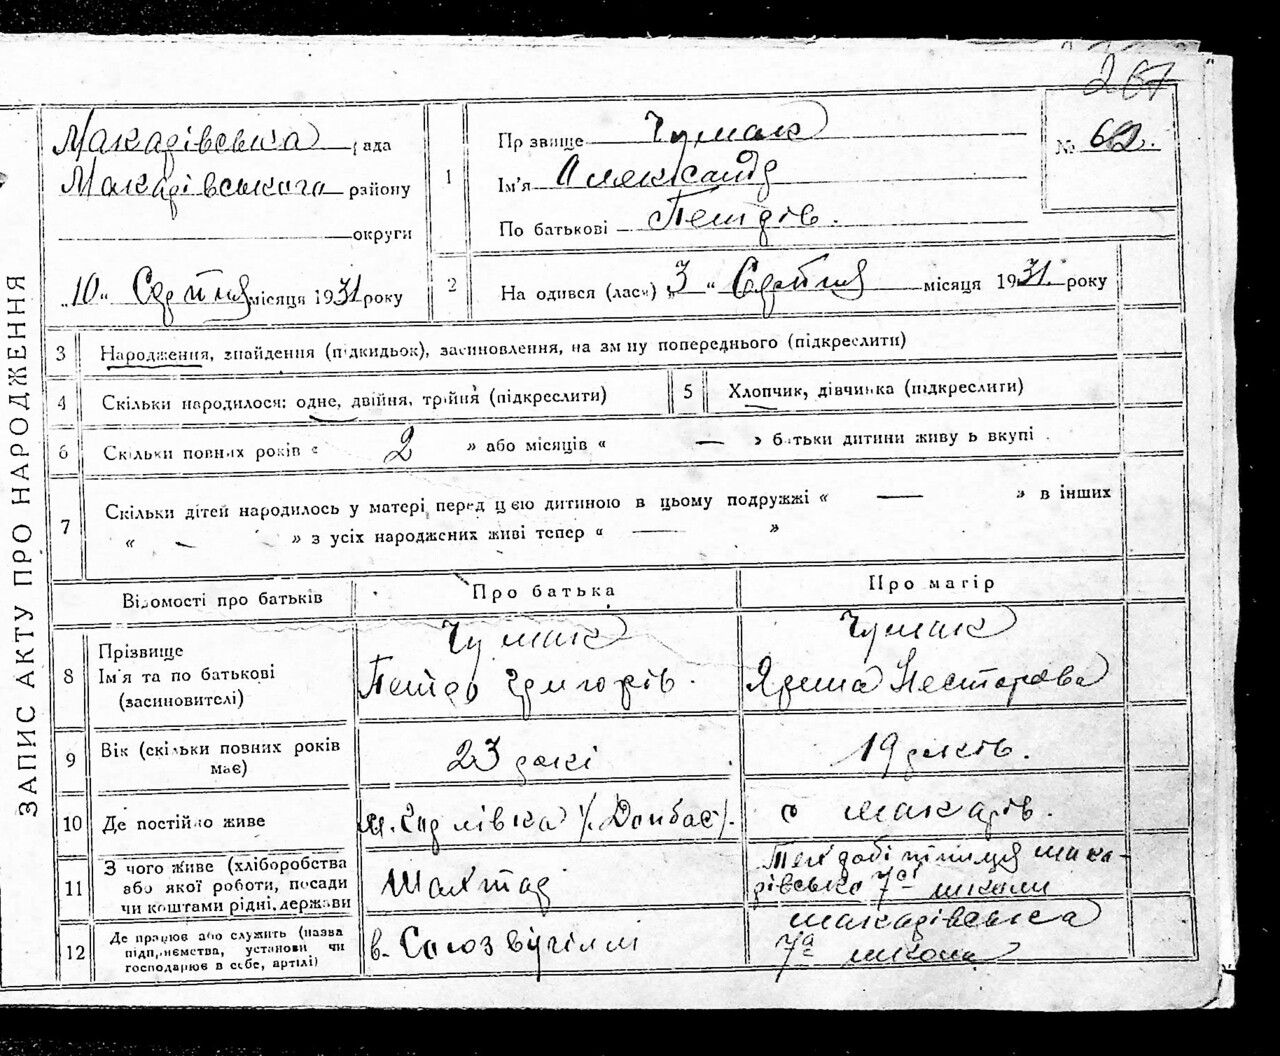 267
Макарівська рада
Макарівського району
округи
„10“ Серпня місяця 1931 року
1
Прізвище Чумак
Ім'я Олександр
По батькові Петрів.
№ 62.
2
На одився (лась) „3“ Серпня місяця 1931 року
ЗАПИС АКТУ ПРО НАРОДЖЕННЯ
3 Народження, знайдення (підкидьок), засиновлення, на зміну попереднього (підкреслити)
4 Скільки народилося: одне, двійня, трійня (підкреслити)
5 Хлопчик, дівчинка (підкреслити)
6 Скільки повних років « 2 » або місяців « — » батьки дитини живуть вкупі
7 Скільки дітей народилось у матері перед цією дитиною в цьому подружжі « — » в інших
« — » з усіх народжених живі тепер « — »
Відомості про батьків
Про батька
Про матір
8 Прізвище
Ім'я та по батькові
(засиновителі)
Чумак
Петро Григорів.
Чумак
Ярина Несторова
9 Вік (скільки повних років
має)
23 рокі
19 років.
10 Де постійно живе
м. Горлівка /Донбас/.
с Макарів.
11 З чого живе (хліборобства
або якої роботи, посади
чи коштами рідні, держави
Шахтар
Мака-
рівської 7ої школи
12 Де працює або служить (назва
підприємства, установи чи
господарює в себе, артілі)
в. Союзвугілля
Макарівська
7а школа